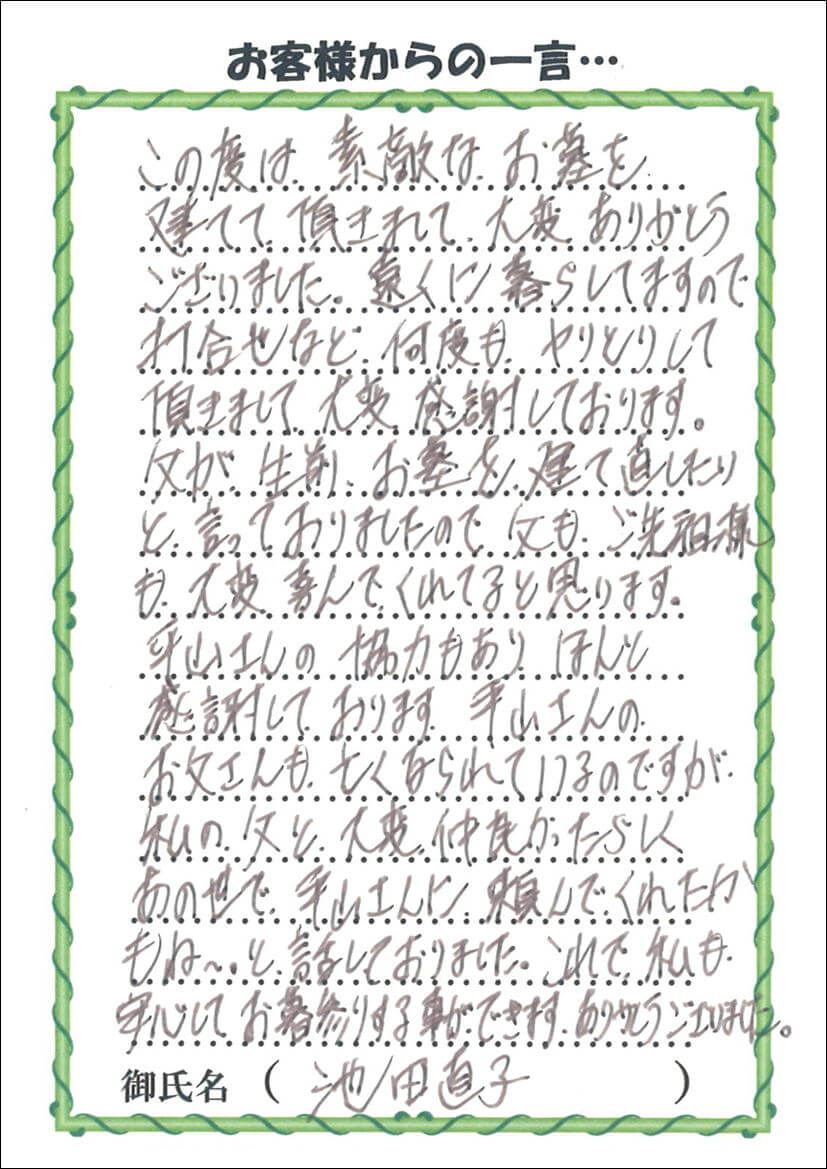 お客様からの一言…
この度は、素敵な、お墓を
建てて、頂きまして、大変、ありがとう
ございました。遠くに暮らしてますので
打合せなど、何度も、やりとりして
頂きまして、大変、感謝しております。
父が、生前、お墓を、建て直したい
と、言っておりましたので、父も、ご先祖様
も、大変、喜んで、くれてると思います。
平山さんの、協力もあり、ほんと
感謝して、おります。平山さんの、
お父さんも、亡くなられているのですが、
私の、父と、大変、仲良かったらしく
あの世で、平山さんに、頼んで、くれたか
もね〜。と、話しておりました。これで、私も、
安心して、お墓参りする事が、できます、ありがとうございました。
御氏名 （ 池田直子 ）